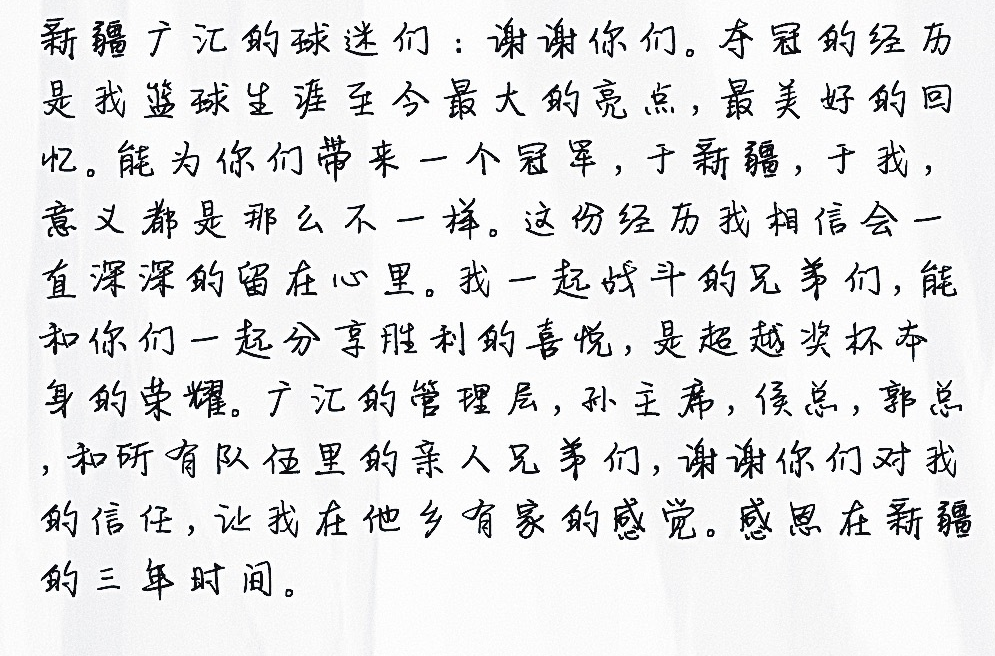 新疆广汇的球迷们：谢谢你们。夺冠的经历
是我篮球生涯至今最大的亮点，最美好的回
忆。能为你们带来一个冠军，于新疆，于我，
意义都是那么不一样。这份经历我相信会一
直深深的留在心里。我一起战斗的兄弟们，能
和你们一起分享胜利的喜悦，是超越奖杯本
身的荣耀。广汇的管理层，孙主席，侯总，郭总
，和所有队伍里的亲人兄弟们，谢谢你们对我
的信任，让我在他乡有家的感觉。感恩在新疆
的三年时间。